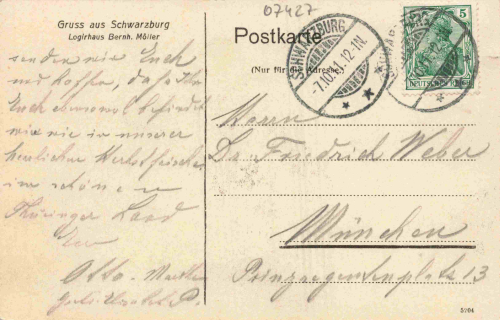 07427
Gruss aus Schwarzburg
Logirhaus Bernh. Müller
Postkarte
(Nur für die Adresse)
SCHWARZBURG
-7.10.11.12-1N.
5
DEUTSCHES REICH
senden wir Euch
und hoffen, daß Ihr
Euch ebensowohl befindet
wie wir in unserer
herrlichen
im schönen
Thüringer Land
Otto
Herrn
Dr Friedrich Weber
München
Prinzregentenplatz 13
5204